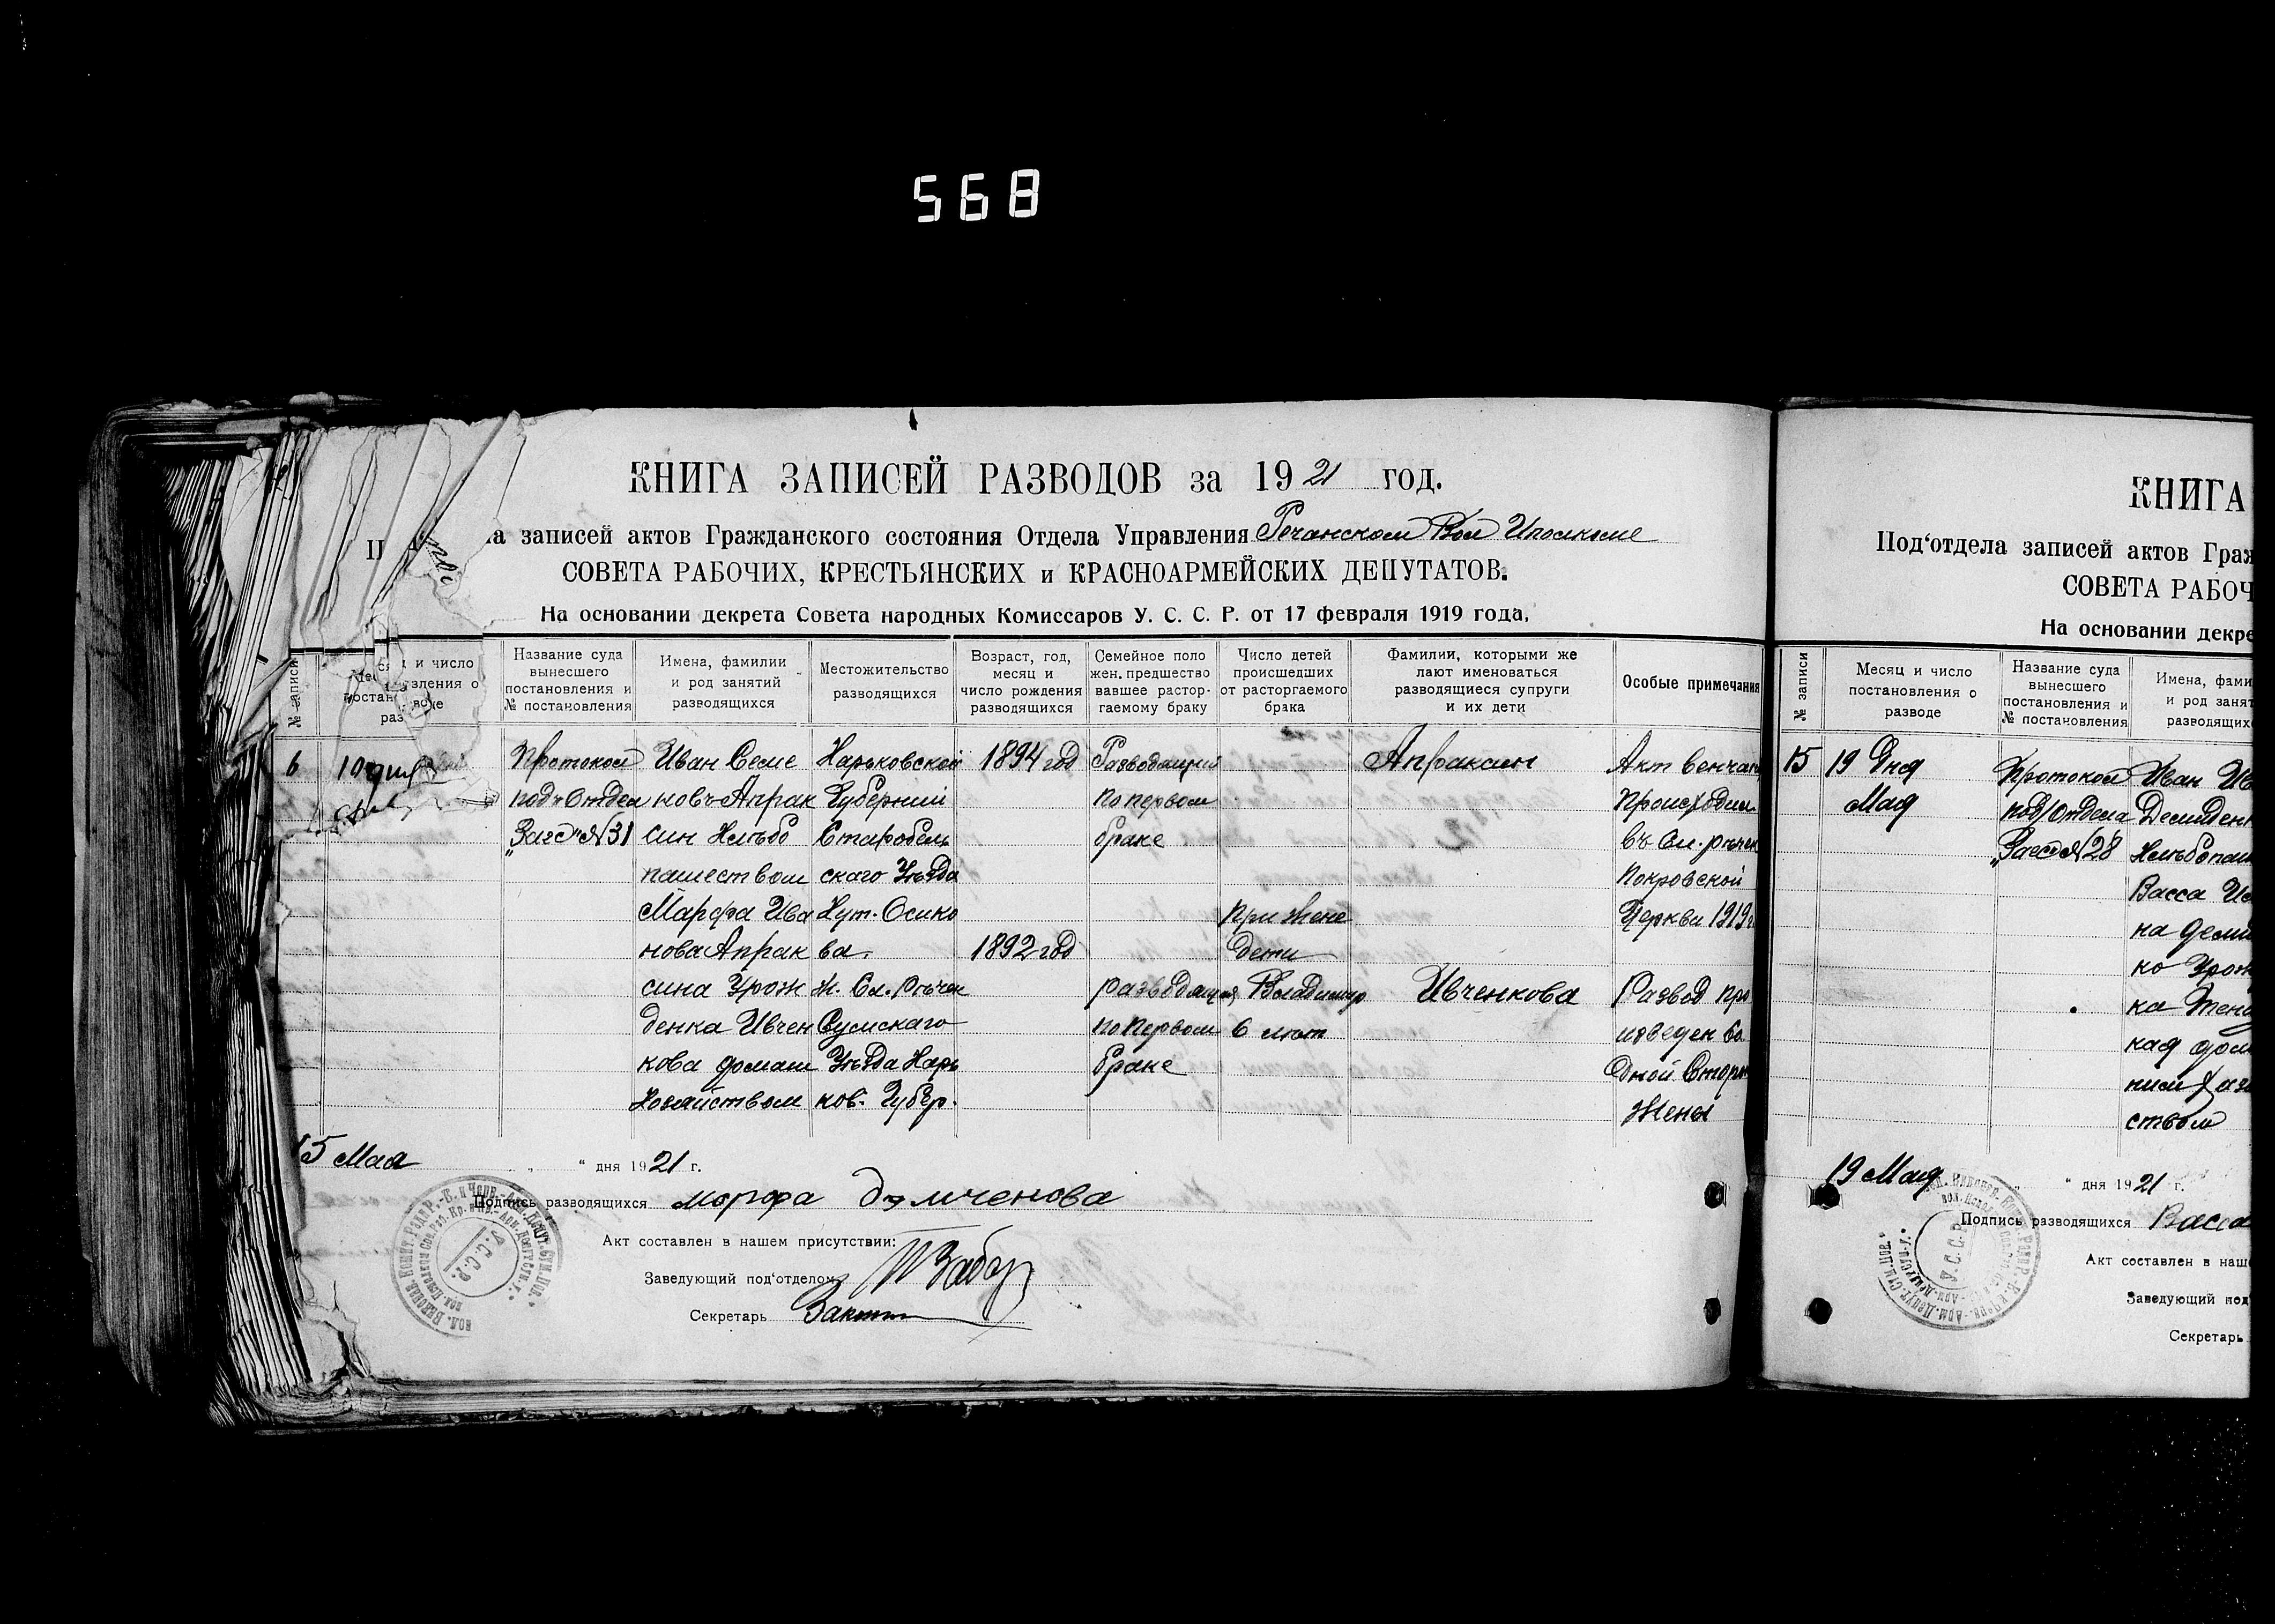 568
КНИГА ЗАПИСЕЙ РАЗВОДОВ за 1921 год.
записей актов Гражданского состояния Отдела Управления Речанском Вол Исполкоме
СОВЕТА РАБОЧИХ, КРЕСТЬЯНСКИХ и КРАСНОАРМЕЙСКИХ ДЕПУТАТОВ.
На основании декрета Совета народных Комиссаров У. С. С. Р. от 17 февраля 1919 года.
№ записи
и число
Название суда вынесшего постановления и № постановления
Имена, фамилии и род занятий разводящихся
Местожительство разводящихся
Возраст, год, месяц и число рождения разводящихся
Семейное положен. предшествовавшее расторгаемому браку
Число детей происшедших от расторгаемого брака
Фамилии, которыми желают именоваться разводящиеся супруги и их дети
Особые примечания
6
10 дня
Протокол
под‘Отдел
„Загс" №31
Иван Семе
новъ Апрак
син Хлѣбо
пашеством
Марфа Ива
нова Апрак
сина Урож
денка Ивчен
кова домаш
Хозяйством
Харьковской
Губернии
Старобель
скаго Уѣзда
Хут. Осико
ва.
Ж. Сл. Рѣчек
Сумскаго
Уѣзда Харь
ков. Губер.
1894 год
1892 год
Разводящий
по первом
браке
разводящая
по первом
браке
При жене
дети
Владимир
6 лет
Апраксин
Ивченкова
Акт венчан
Происходил
въ Сл. рѣчек
Покровской
Церкви 1919 г
Развод про
изведен Со
дной Сторон
Жены
15 Мая „ “ дня 1921 г.
Подпись разводящихся
Акт составлен в нашем присутствии:
Заведующий под‘отделом
Секретарь
У.С.С.Р.
КНИГА
Под‘отдела записей актов Граж
СОВЕТА РАБОЧ
На основании декре
№ записи
Месяц и число постановления о разводе
Название суда вынесшего постановления и № постановления
Имена, фами
и род занят
разводящих
15
19 Дня
Мая
Протокол
под‘Отдела
„Загс" №28
Иван Ив
Демиден
Хлѣбопаш
Васса Ив
на Деми
ко Урож
ка Жена
ная дом
ним Хозя
ством
19 Мая “ дня 1921 г.
Подпись разводящихся Васса
Акт составлен в наш
Заведующий под
Секретарь
У.С.С.Р.